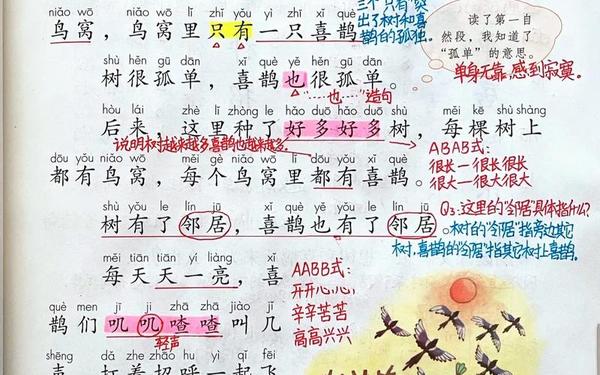 niǎo wō niǎo wō lǐ zhǐ yǒu yì zhī xǐ què
鸟窝，鸟窝里只有一只喜鹊
三个“只有”突
出了树和喜
鹊的孤独。
读了第一自
然段，我知道了
“孤单”的意思。
单身无靠，感到寂寞。
shù hěn gū dān xǐ què yě hěn gū dān
树很孤单，喜鹊也很孤单。
“……也……”造句
hòu lái zhè lǐ zhòng le hǎo duō hǎo duō shù měi kē shù shàng
后来，这里种了好多好多树，每棵树上
说明树越来越多，喜鹊也越来越多。
ABAB式：
很长—很长很长
很大—很大很大
dōu yǒu niǎo wō měi gè niǎo wō lǐ dōu yǒu xǐ què
都有鸟窝，每个鸟窝里都有喜鹊。
shù yǒu le lín jū xǐ què yě yǒu le lín jū
树有了邻居，喜鹊也有了邻居。
Q3：这里的“邻居”具体指什么？
树的“邻居”指旁边其它
树，喜鹊的“邻居”指其它树上喜鹊。
měi tiān tiān yí liàng xǐ
每天天一亮，喜
què men jī jī zhā zhā jiào jǐ
鹊们叽叽喳喳叫几
轻声
AABB式：
开开心心
辛辛苦苦
高高兴兴
shēng dǎ zhe zhāo hu yì qǐ fēi
声，打着招呼一起飞